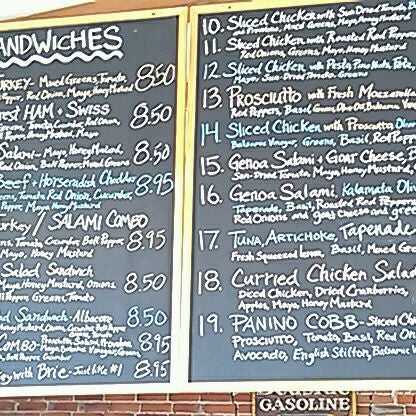 ANDWICHES
URKEY - Mixed Greens, Tomato, 8.50
Pepper, Red Onion, Mayo, Honey Mustard
rest HAM + SWISS 8.50
Mayo
Salami - Mayo, Honey Mustard, 8.50
Red Onion, Bell Pepper, Mixed Greens
Beef + Horseradish Cheddar 8.95
Greens, Tomato, Red Onion, Cucumber,
Pepper, Mayo, Honey Mustard
urkey / SALAMI COMBO
Greens, Tomato, Cucumber, Bell Pepper, 8.95
Mayo, Honey Mustard
Salad Sandwich
Honey Mustard, Onions 8.50
Pepper, Greens, Tomato
ad Sandwich - Albacore 8.50
COMBO - Prosciutto, Salami, Provolone, 8.95
Mayo, Balsamic Vinegar, Greens,
ey with BRIE - Just like #1 8.95
10. Sliced Chicken with Sun-Dried Tomato, P
and Provolone, Mixed Greens, Mayo, Honey Mustard
11. Sliced Chicken with Roasted Red Pepper
Red Onions, Greens, Mayo, Honey Mustard
12. Sliced Chicken with Pesto, Pine Nuts, Feta,
Mayo, Sun-Dried Tomato, Greens
13 Prosciutto with Fresh Mozzarella
Red Peppers, Basil, Greens, Olive Oil, Balsamic Vin
14 Sliced Chicken with Prosciutto, Olive
Balsamic Vinegar, Greens, Basil, Red P
15. Genoa Salami + Goat Cheese, B
Sun-Dried Tomato, Mayo, Honey Mustard,
16. Genoa Salami, Kalamata Oliv
Tapenade, Basil, Roasted Red Pepper
Red Onions and goat cheese and gre
17. TUNA, ARTICHOKE, Tapenade
Fresh Squeezed lemon, Basil, Mixed G
18. Curried Chicken Salad
Diced Chicken, Dried Cranberries,
Apples, Mayo, Honey Mustard
19. PANINO COBB - Sliced Chi
PROSCIUTTO, Tomato, Basil, Red On
AVOCADO, English Stilton, Balsamic
GASOLINE